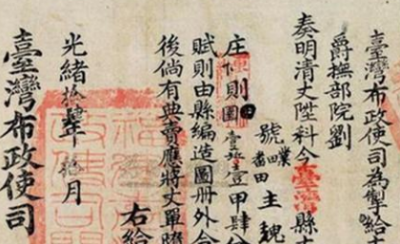 臺灣布政使司為掣給
爵撫部院劉
奏明清丈陞科今臺灣縣
庄下則田
號
業
主魏
壹甲肆分
賦則由縣編造圖冊外合
後倘有典賣應將丈單隨
右給
光緒拾肆年拾月
臺灣布政使司